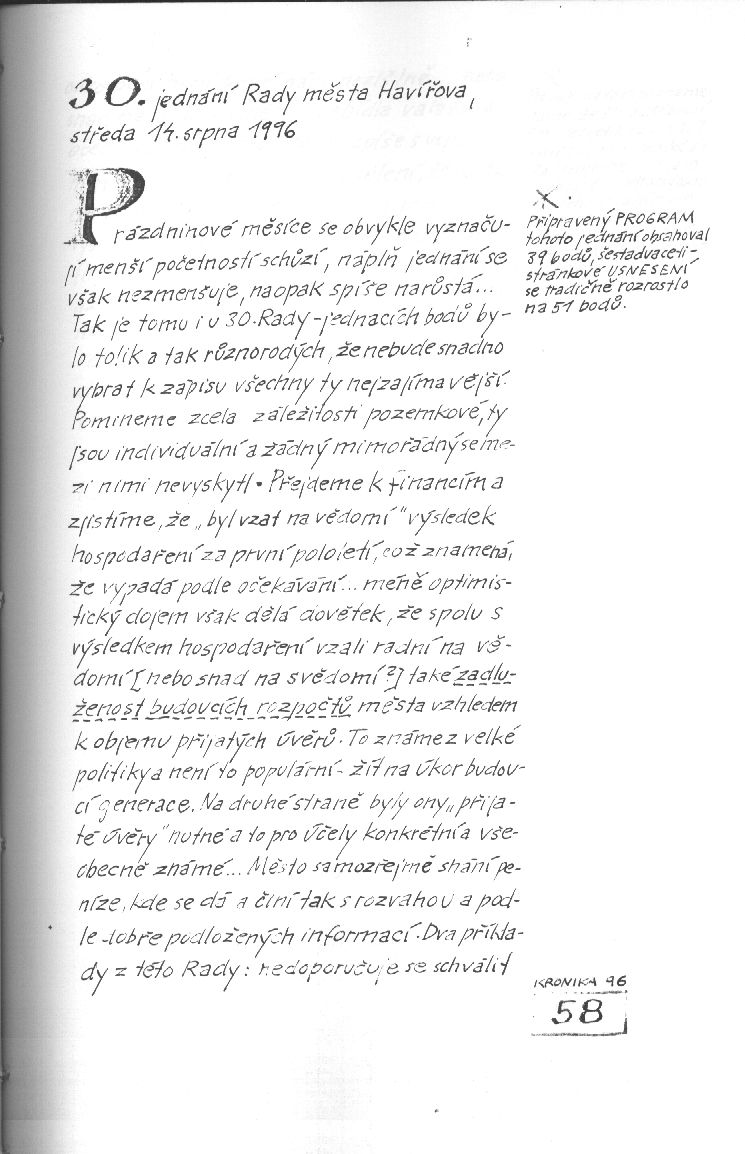 30. jednání Rady města Havířova,
středa 14. srpna 1996
Prázdninové měsíce se obvykle vyznaču-
jí menší početností schůzí, náplň jednání se
však nezmenšuje, naopak spíše narůstá...
Tak je tomu i u 30. Rady - jednacích bodů by-
lo tolik a tak různorodých, že nebude snadno
vybrat k zápisu všechny ty nejzajímavější.
Pomineme zcela záležitosti pozemkové, ty
jsou individuální a žádný mimořádný se me-
zi nimi nevyskytl. Přejdeme k financím a
zjistíme, že „byl vzat na vědomí" výsledek
hospodaření za první pololetí, což znamená,
že vypadá podle očekávání... méně optimis-
tický dojem však dělá dovětek, že spolu s
výsledkem hospodaření vzali radní na vě-
domí [nebo snad na svědomí?] také zadlu-
ženost budoucích rozpočtů města vzhledem
k objemu přijatých úvěrů. To známe z velké
politiky a není to populární - žít na úkor budou-
cí generace. Na druhé straně byly ony „přija-
té úvěry" nutné a to pro účely konkrétní a vše-
obecně známé... Město samozřejmě shání pe-
níze, kde se dá a činí tak s rozvahou a pod-
le dobře podložených informací. Dva příkla-
dy z této Rady: nedoporučuje se schválit
Připravený PROGRAM
tohoto jednání obsahoval
39 bodů, šestadvaceti-
stránkové USNESENÍ
se tradičně rozrostlo
na 51 bodů.
KRONIKA 96
58